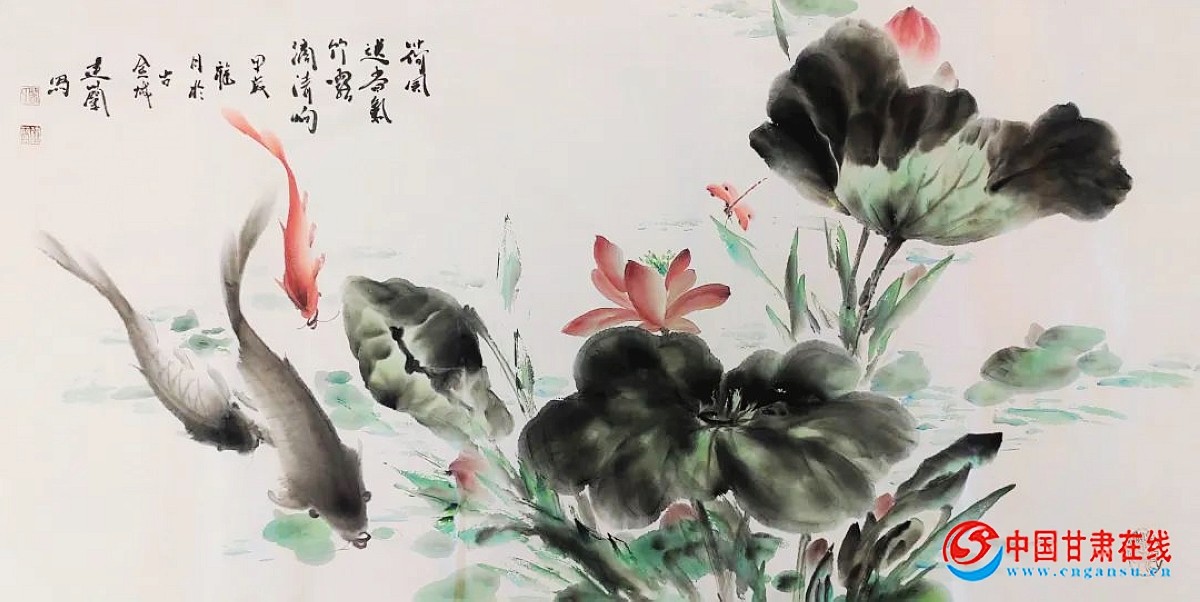 荷風
送香氣
竹露
滴清响
甲辰
龍
月於
古
金城
写
中国甘肃在线
www.cngansu.cn